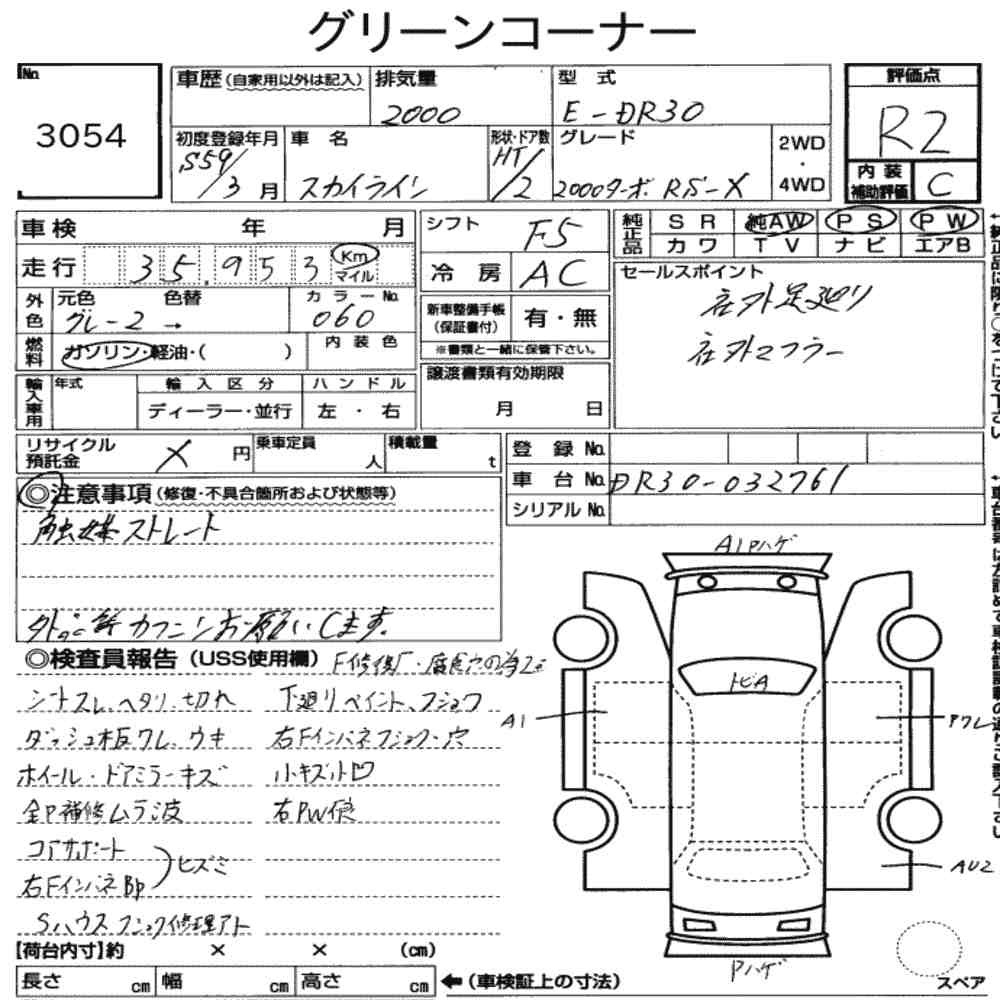 グリーンコーナー
No.
3054
車歴(自家用以外は記入)
排気量
2000
型式
E-DR30
評価点
R2
内装補助評価
C
初度登録年月
S59/3月
車名
スカイライン
形状・ドア数
HT/2
グレード
2000ターボ RS-X
2WD・4WD
車検 年 月
走行 35,953 Km マイル
シフト
F5
冷房
AC
純正品
SR 純AW PS PW
カワ TV ナビ エアB
セールスポイント
社外足廻り
社外マフラー
外色
元色 色替
グレー2 →
カラーNo.
060
燃料
ガソリン・軽油・( )
内装色
新車整備手帳(保証書付)
有・無
※書類と一緒に保管下さい。
輸入車用
年式
輸入区分
ディーラー・並行
ハンドル
左・右
譲渡書類有効期限
月 日
リサイクル預託金
× 円
乗車定員
人
積載量
t
登録No.
車台No. DR30-032761
シリアルNo.
◎注意事項(修復・不具合箇所および状態等)
触媒ストレート
カクニンお願いします。
◎検査員報告(USS使用欄)
シートスレ、ヘタリ、切れ
ダッシュ板ワレ、ウキ
ホイール・ドアミラーキズ
全P補修ムラ波
コアサポート
右FインパネBP
ヒズミ
Sハウスフショク修理アト
下廻りペイント、フショク
右Fインパネフショク・穴
小キズ小凹
右PW
A1 Pハゲ
トビA
A1
Pワレ
AU2
Pハゲ
スペア
【荷台内寸】約 × × (cm)
長さ cm 幅 cm 高さ cm
←(車検証上の寸法)